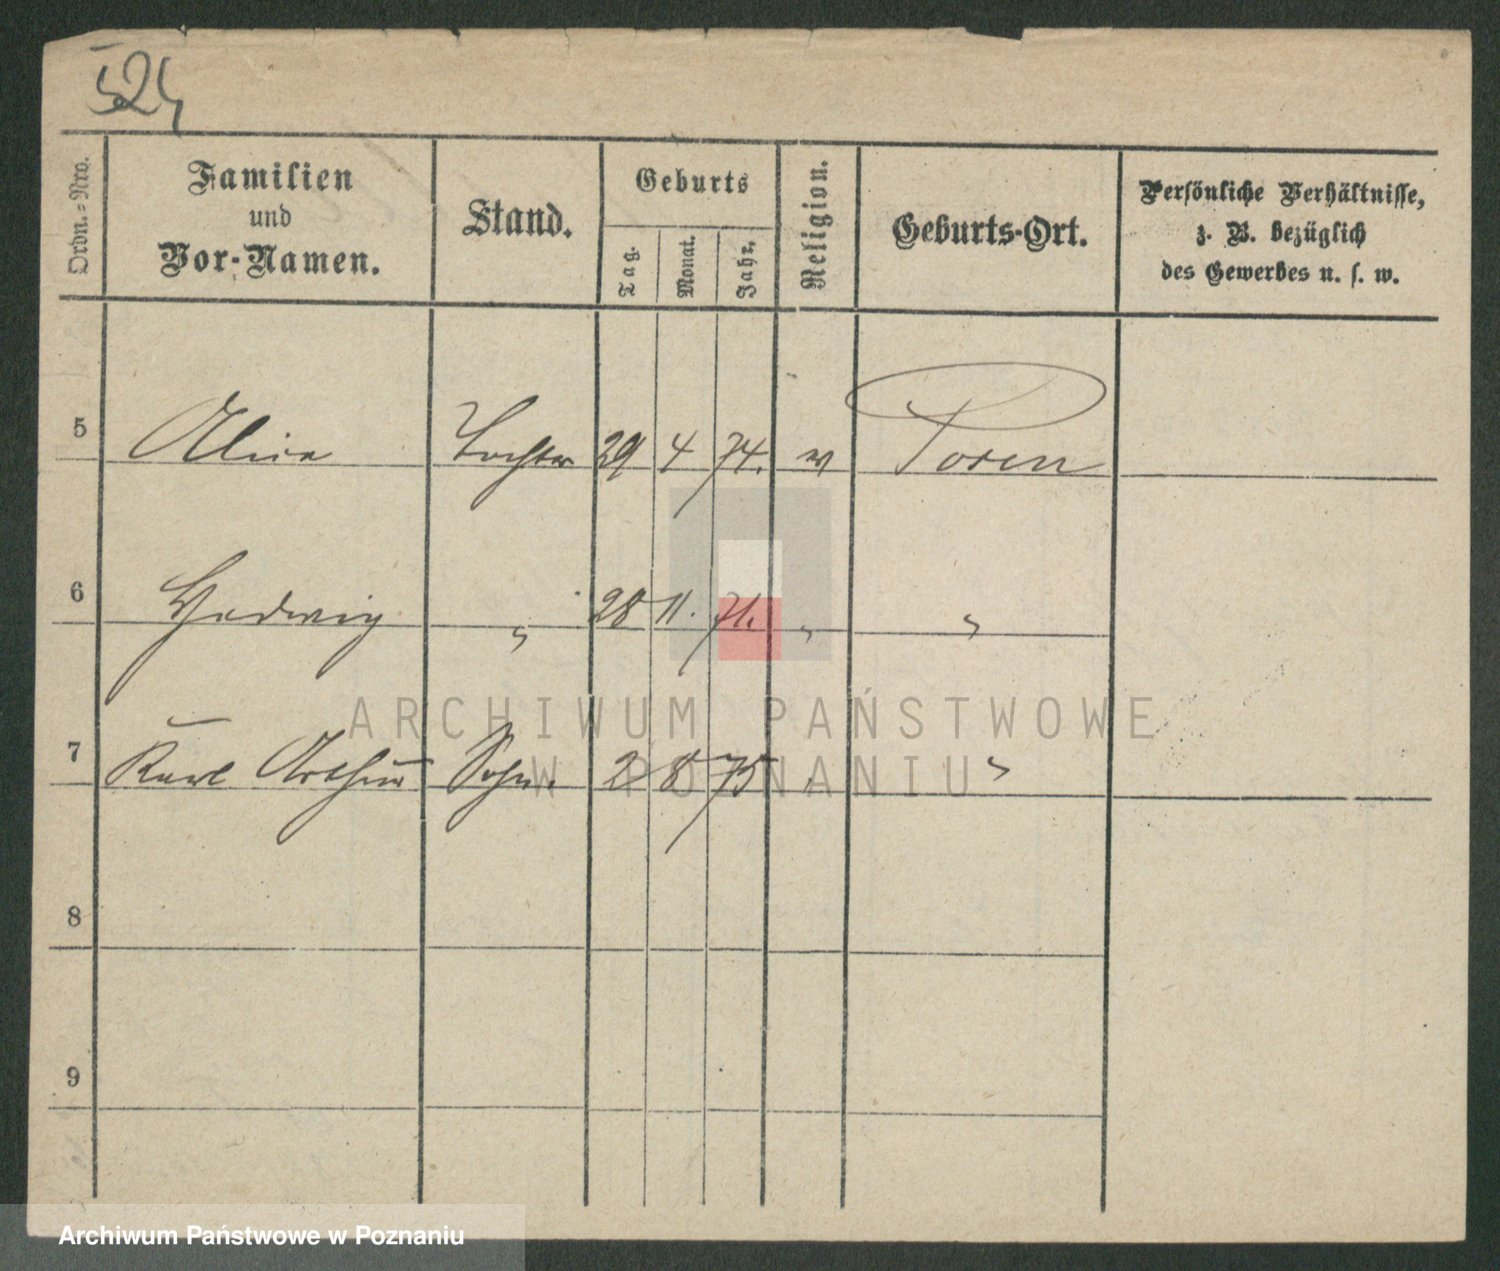 524
Ordn.-Nro.
Familien
und
Vor-Namen.
Stand.
Geburts
Tag.
Monat.
Jahr.
Religion.
Geburts-Ort.
Persönliche Verhältnisse,
z. B. bezüglich
des Gewerbes u. s. w.
5 Alice Tochter 29 4 74. Posen
6 Hedwig " 28 11. 71. " "
7 Karl Arthur Sohn. 2 8 75 "
8
9
ARCHIWUM PAŃSTWOWE
W POZNANIU
Archiwum Państwowe w Poznaniu